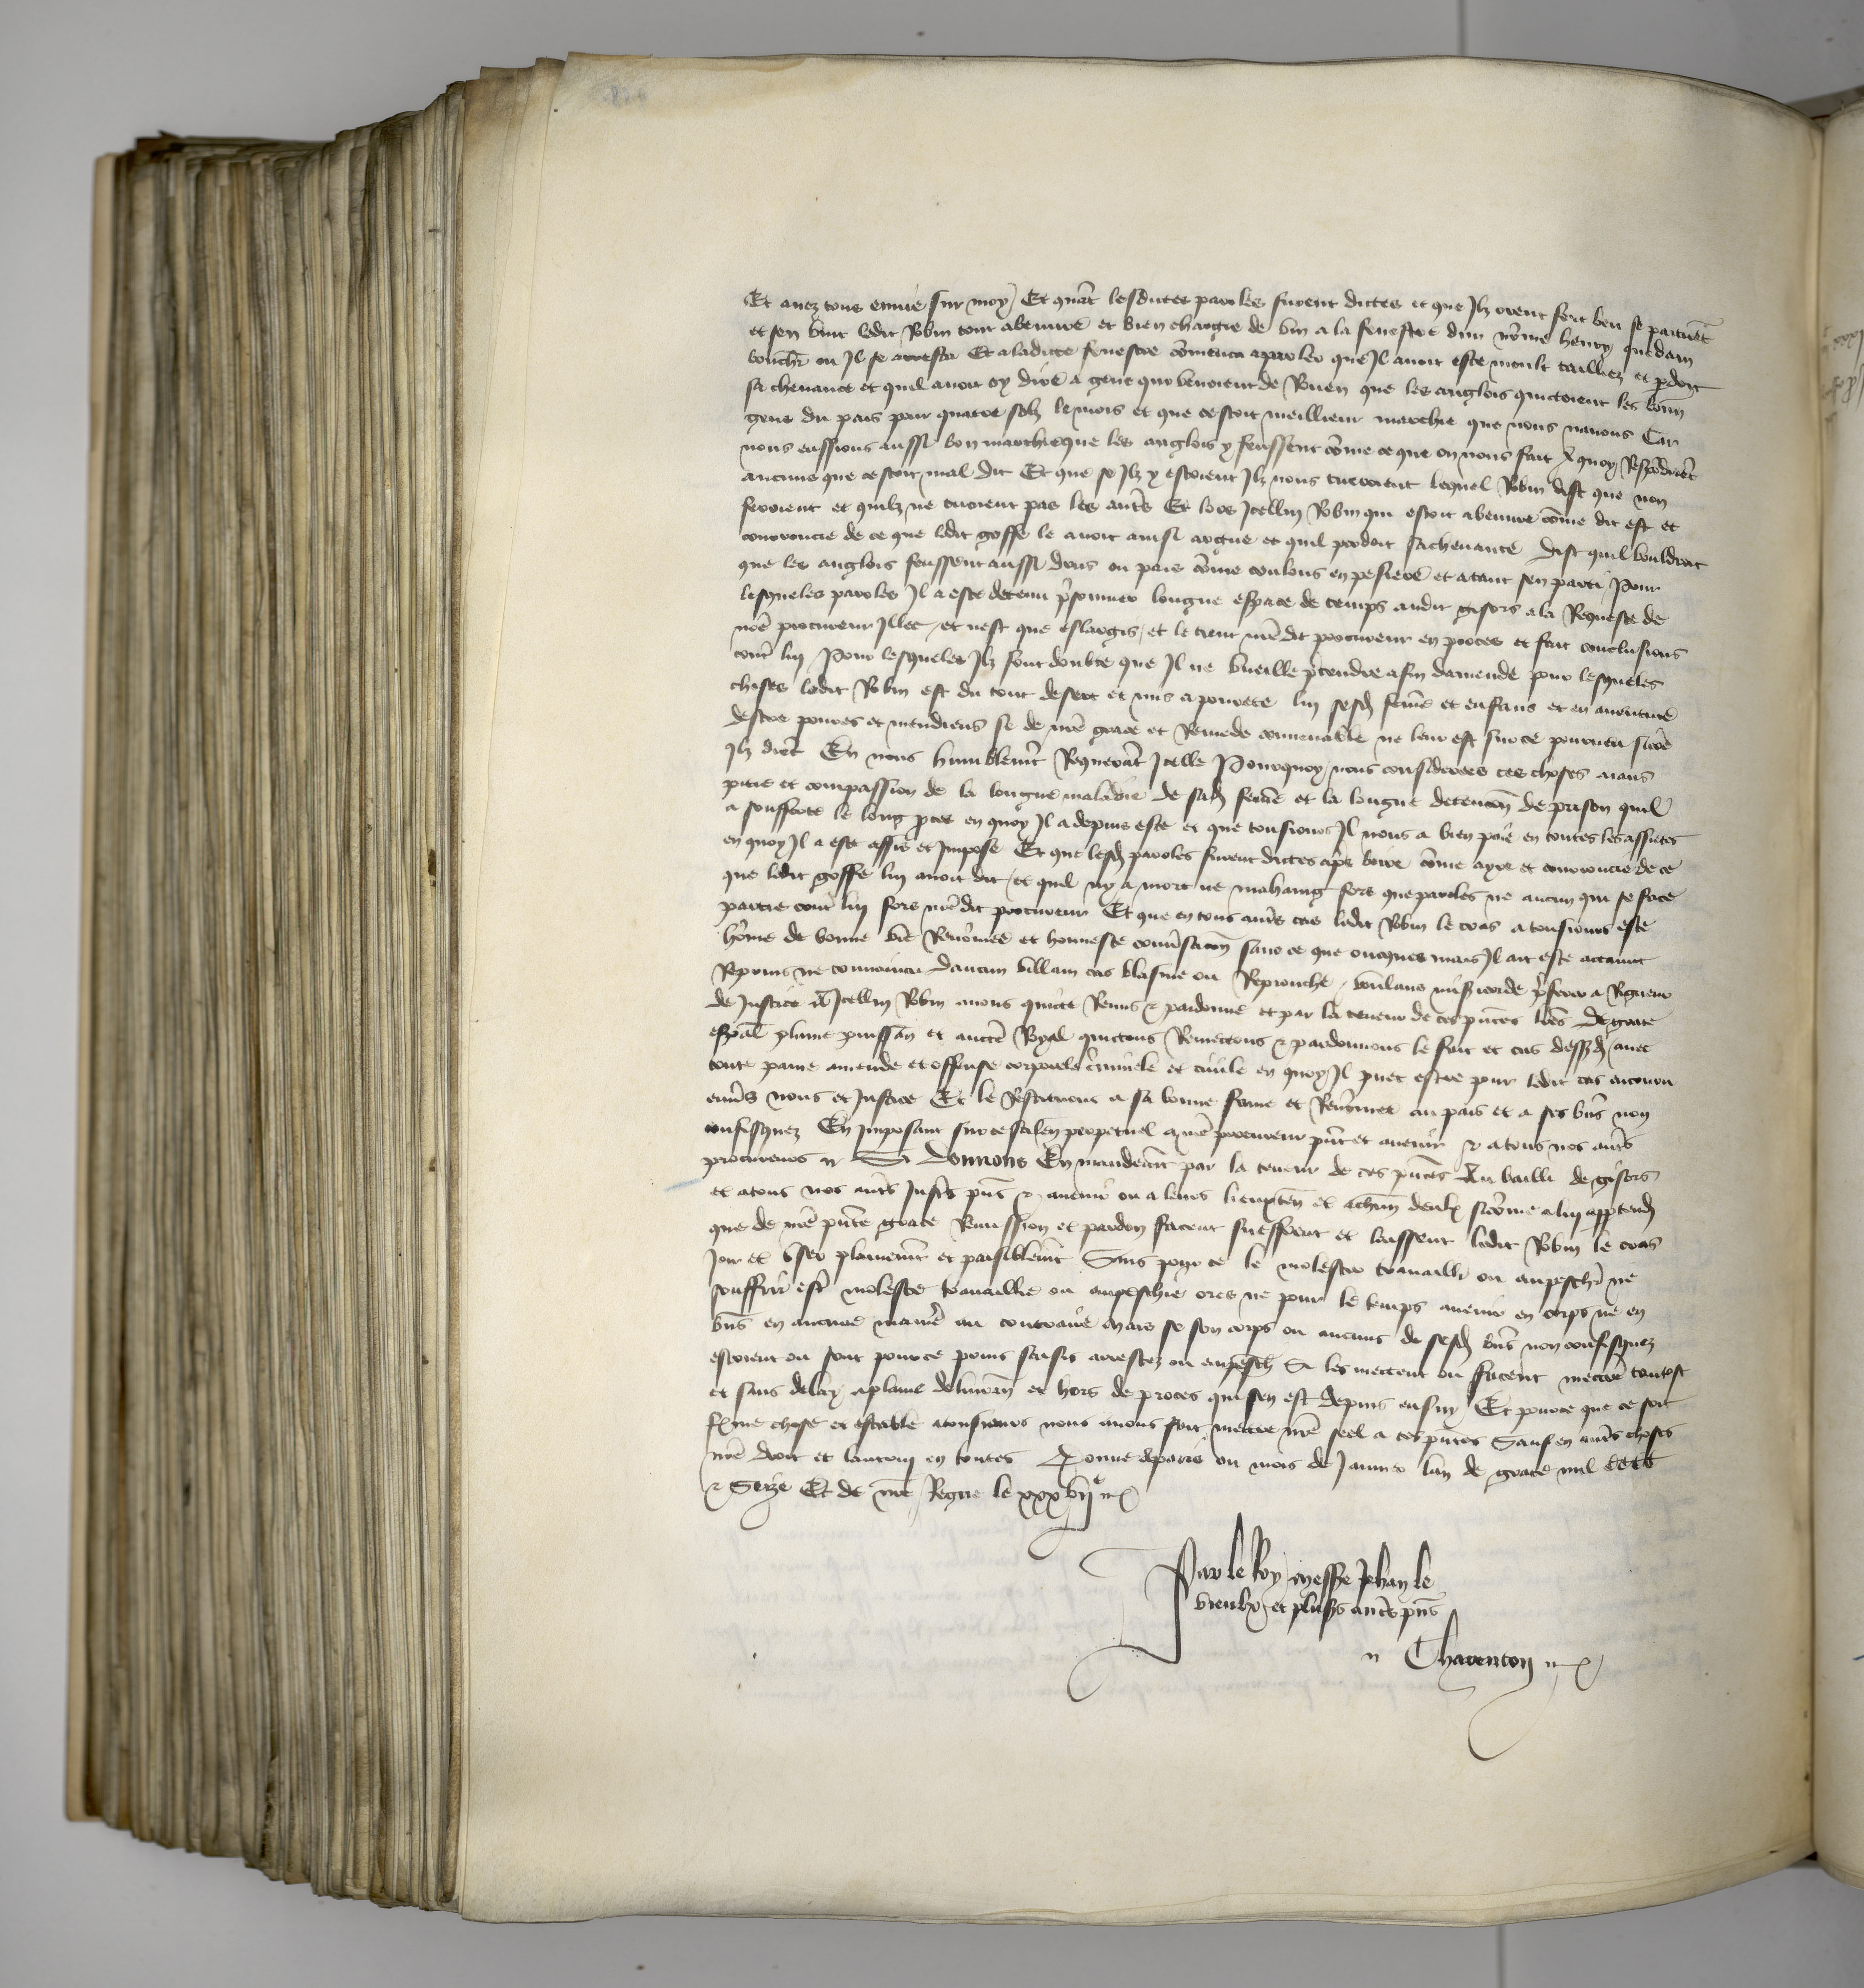 Et avez tous envie sur moy Et quāt lesdictes paroles furent dictes et que Ilz orent fort beu se partirēt
et sen vint ledit Robin tout abeuvre et bien chargie de vin a la fenestre dun nōme henry quedam
bouch̄r ou Il se arresta Et a ladicte fenestre cōmenca a parler que Il avoit este moult tailliez et pdoit
sa chevance et quil avoit oy dire a gens qui venoient de Rouen que les anglois quictoient les bōn
gens du pais pour quatre solz le mois et que cestoit meilleur marchie que nous navons Car
nous eussions aussi bon marchie que les anglois y feussent cōme ce que on nous fait A quoy Respōdirēt
aucuns que cestoit mal dit Et que se Ilz y estoient Ilz nous tueroient lequel Robin dist que non
feroient et quilz ne tuoient pas les autrēs Et lors Icellui Robin qui estoit abeuvre cōme dit est et
courroucie de ce que ledit goffe le avoit ainsi argue et quil perdoit sa chevance dist quil vouldroit
que les anglois feussent aussi drus ou pais cōme coulons en pesiere et atant sen parti Pour
lesqueles paroles Il a este detenu prisonnier longue espace de temps audit gisors a la Requeste de
nrē procureur Illec et nest que eslargis et le tient nrē dit procureur en proces et fait conclusions
contr̄ lui Pour lesqueles Ilz font doubte que Il ne vueille ptendre afin damende pour lesqueles
choses ledit Robin est du tout desert et mis a povrete lui sesd femē et enfans et en aventure
destre povres et mendiens se de nrē grace et Remede convenable ne leur est sur ce pourveu sicōe
Ilz diēt En nous humblemēt Requerāt Icelle Pourquoy nous considerees ces choses aians
pitie et compassion de la longue maladie de sad femē et la longue detencōn de prison quil
a soufferte le long pces en quoy Il a depuis este et que tousiours Il nous a bien paie en toutes les assietes
en quoy Il a este assis et Impose Et que lesd paroles furent dictes apres boire cōme ayre et courroucie de ce
que ledit goffe lui avoit dit et quil ny a mort ne mahaing fors que paroles ne aucun qui se face
partie contr̄ lui fors nrē dit procureur Et que en tous autrēs cas ledit Robin le cras a tousiours este
hōme de bonne vie Renōmee et honneste conv̄sacion sans ce que oncques mais Il ait este attaint
Reprins ne convaincu daucun villain cas blasme ou Reprouche voulans mis̄icorde p̄ferer a Rigueur
de Justice A Icellui Robin avons quicte Remis & pardonne et par la teneur de ces pn̄tes lrēs de grace
esp̄al plaine puissan̄ et auct̄e Royal quictons Remectons & pardonnons le fait et cas dessusd avec
toute paine amende et offense corporele criminele et civile en quoy Il puet estre pour ledit cas encouru
env̄s nous et Justice Et le Restituons a sa bonne fame et Renōmee au pais et a ses bn̄s non
confisquez En Imposant sur ce silen̄ perpetuel a nrē procureur pn̄t et avenir & a tous nos autrēs
procureurs Si Donnons En mandemēt par la teneur de ces pn̄tes Au bailli de gisors
et a tous nos autrēs Justic̄s pn̄s & avenir ou a leurs lieuxten̄ et achun̄ deulx sicōme a lui app̄tendra
que de nrē pn̄te grace Remission et pardon facent sueffrent et laissent ledit Robin le cras
Joir et user plainemēt et paisiblemēt Sans pour ce le molester travaillr̄ ou empeschr̄ ne
souffrir est̄r moleste travaillie ou empeschie ores ne pour le temps avenir en corps ne en
bn̄s en aucune maniē au contraire Mais se son corps ou aucuns de sesd bn̄s non confisquez
estoient ou sont pour ce prins saisis arrestez ou empesch̄ Si les mectent ou facent mectre tantost
et sans delay a plaine delivran̄ et hors de proces qui sen est depuis ensuy Et pource que ce soit
ferme chose et estable a tousiours nous avons fait mectre nrē seel a ces pn̄tes Sauf en autrēs choses
nrē droit et lautruy en toutes Donne a paris ou mois de Janvier lan de grace mil cccc
& Seize Et de nrē Regne le xxxvij^e
Par le Roy messre Jehan le
vieulx et plus̄s autrēs pn̄s
Charenton